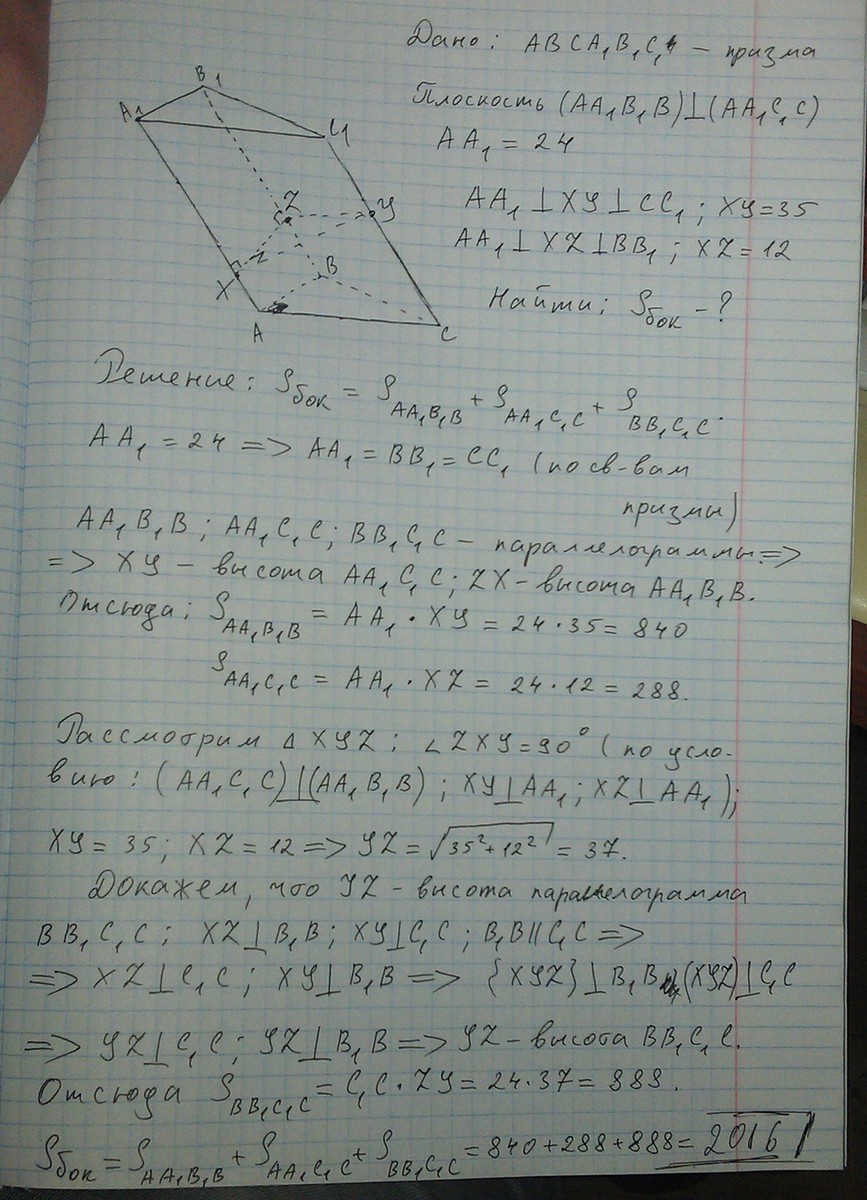 Дано: ABCA₁B₁C₁ – призма
Плоскость (AA₁B₁B)⊥(AA₁C₁C)
AA₁ = 24
AA₁ ⊥ XY ⊥ CC₁ ; XY=35
AA₁ ⊥ XZ ⊥ BB₁ ; XZ=12
Найти: Sбок – ?
A₁
B₁
C₁
Z
Y
X
B
A
C
Решение: Sбок = S AA₁B₁B + S AA₁C₁C + S BB₁C₁C.
AA₁ = 24 => AA₁ = BB₁ = CC₁ (по св-вам
призмы)
AA₁B₁B ; AA₁C₁C ; BB₁C₁C – параллелограммы =>
=> XY – высота AA₁C₁C ; ZX – высота AA₁B₁B.
Отсюда: S AA₁B₁B = AA₁ · XY = 24·35 = 840
S AA₁C₁C = AA₁ · XZ = 24·12 = 288.
Рассмотрим Δ XYZ : ∠ZXY=90° (по усло-
вию: (AA₁C₁C)⊥(AA₁B₁B) ; XY⊥AA₁ ; XZ⊥AA₁);
XY = 35 ; XZ = 12 => YZ = √35²+12² = 37.
Докажем, что YZ – высота параллелограмма
BB₁C₁C ; XZ⊥B₁B ; XY⊥C₁C ; B₁B∥C₁C =>
=> XZ⊥C₁C ; XY⊥B₁B => {XYZ}⊥B₁B, (XYZ)⊥C₁C
=> YZ⊥C₁C ; YZ⊥B₁B => YZ – высота BB₁C₁C.
Отсюда S BB₁C₁C = C₁C · ZY = 24·37 = 888.
Sбок = S AA₁B₁B + S AA₁C₁C + S BB₁C₁C = 840+288+888 = 2016